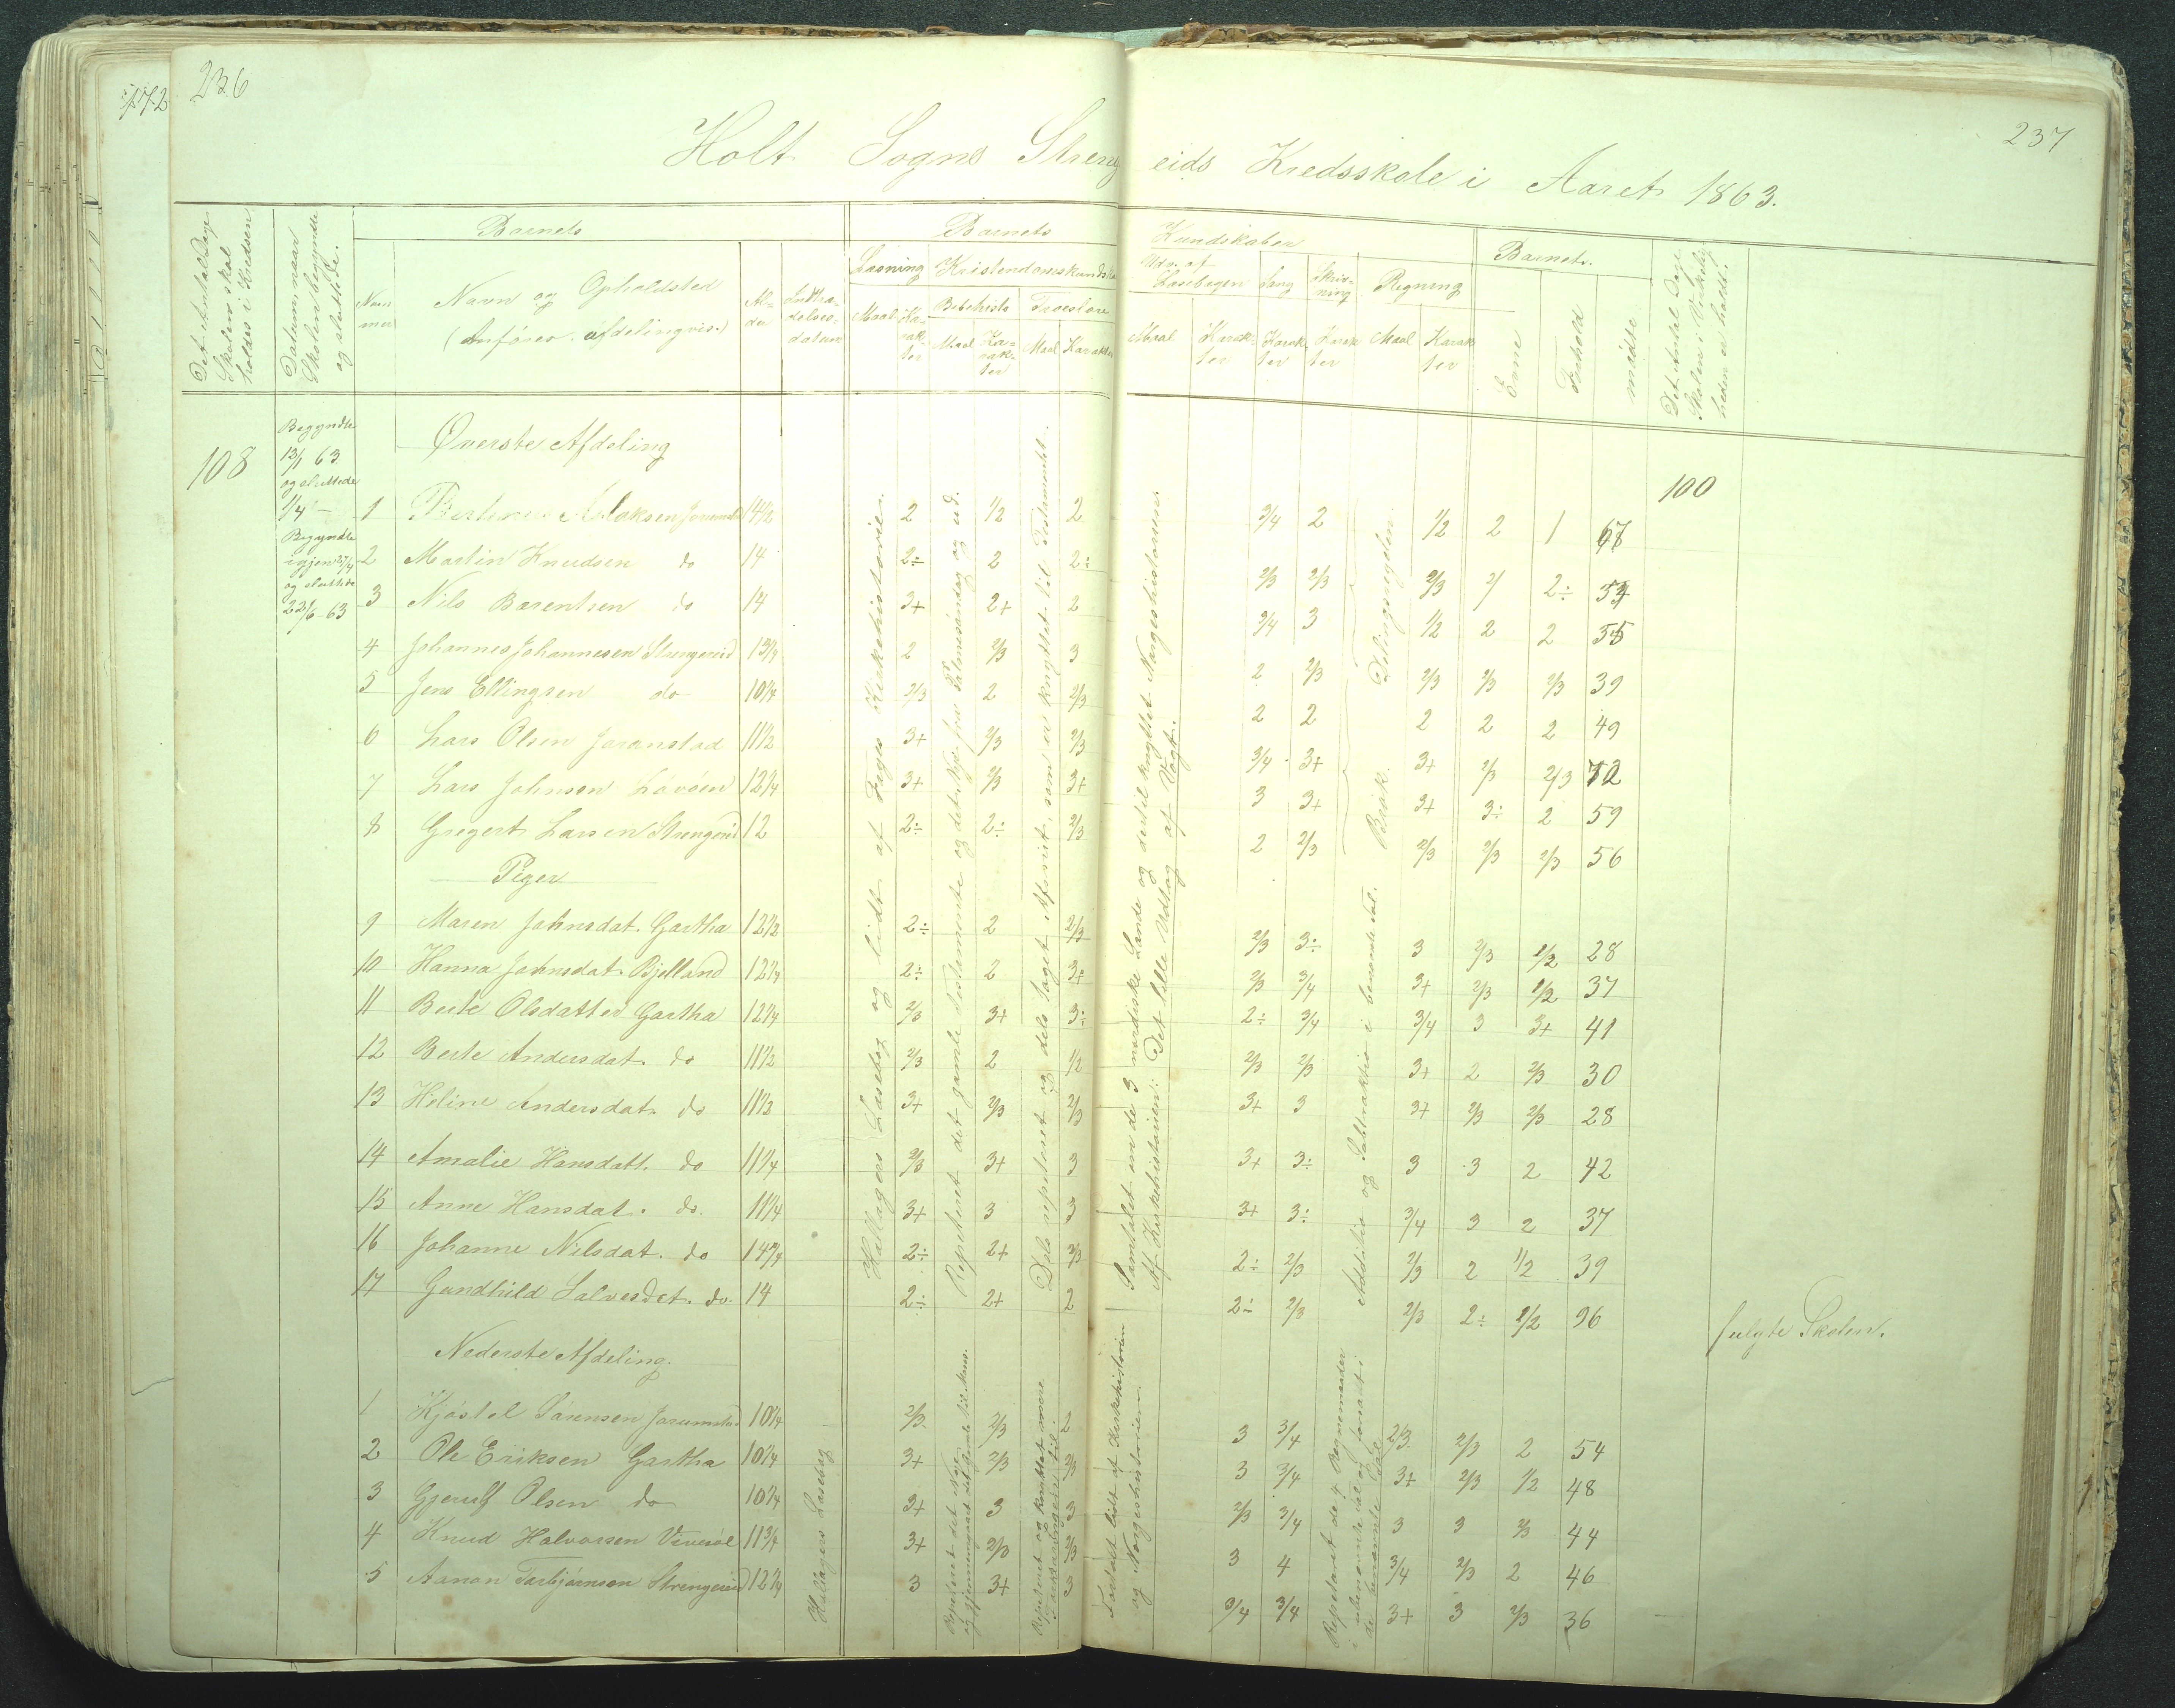 172
236
237
Holt Sogns Strengeids Kredsskole i Aaret 1863.
Det Antal Dage Skolen skal holdes i Kredsen
Datum naar Skolen begyndte og sluttede.
Barnets
Barnets
Kundskaber
Barnets
Det Antal Dage Skolen i Virkeligheden er holdt.
Nummer
Navn og Opholdsted
(Anføres afdelingvis.)
Alder
Indtrædelsesdatum
Læsning
Kristendomskundskab
Udv. af Læsebogen
Sang
Skrivning
Regning
Maal
Karakter
Bibelhistorie
Troeslære
Maal
Karakter
Maal
Karakter
Maal
Karakter
Karakter
Karakter
Maal
Karakter
Evne
Forhold
mødte
108
Begyndte
12/1 63
og sluttede
1/4 —
Begyndte
igjen 27/4
og sluttede
22/6 - 63
100
Øverste Afdeling
1 Aslaksen 14 1/2 2 1/2 2 3/4 2 1/2 2 1 68
2 Martin Knudsen do 14 2÷ 2 2÷ 2/3 2/3 2/3 2/ 2÷ 54
3 Nils Barentsen do 14 3+ 2+ 2 3/4 3 1/2 2 2 55
4 Johannes Johannesen Strengereid 13 3/4 2 2/3 3 2 2/3 2/3 2/3 2/3 39
5 Jens Ellingsen do 10 3/4 2/3 2 2/3 2 2 2 2 2 49
6 Lars Olsen Jaranstad 11 1/2 3+ 2/3 2/3 3/4 3+ 3+ 2/3 2/3 52
7 Lars Johnsen Løvøen 12 1/4 3+ 2/3 3+ 3 3+ 3+ 3÷ 2 59
8 Gregert Larsen Strengereid 12 2÷ 2÷ 2/3 2 2/3 2/3 2/3 2/3 56
Piger
9 Maren Johnsdat. Gartha 12 1/2 2÷ 2 2/3 2/3 3÷ 3 2/3 1/2 28
10 Hanna Johnsdat. Bjelland 12 1/4 2÷ 2 3+ 2/3 3/4 3+ 2/3 1/2 37
11 Berte Olsdatter Gartha 12 1/4 2/3 3+ 3÷ 2÷ 3/4 3/4 3 3+ 41
12 Berte Andersdat. do 11 1/2 2/3 2 1/2 2/3 2/3 3+ 2 2/3 30
13 Heline Andersdat. do 11 1/2 3+ 2/3 2/3 3+ 3 3+ 2/3 2/3 28
14 Amalie Hansdatt. do 11 1/4 2/3 3+ 3 3+ 3÷ 3 3 2 42
15 Anne Hansdat. do. 11 1/4 3+ 3 3 3+ 3÷ 3/4 3 2 37
16 Johanne Nilsdat. do 14 3/4 2÷ 2+ 2/3 2÷ 2/3 2/3 2 1/2 39
17 Gundhild Salvesdat. do. 14 2÷ 2+ 2 2÷ 2/3 2/3 2÷ 1/2 36
fulgte Skolen.
Hallagers Læsebog og lidt af Kirkehistorie.
Repeteret det gamle Testamente og det Nye fra
Dels repeteret og dels taget Afsnit, som er knyttet til Testamentet.
Samtalet om de 3 nordiske Lande og dertil knyttet Norgeshistorien
Af Kirkehistorien: Det lille Udtog af Vogt.
Addition og Subtraktion i benævnte Tal. Brøk. Delingsregelen.
Nederste Afdeling.
1 Kjøstel Sørensen 10 3/4 2/3 2/3 2 3 3/4 2/3 2/3 2 54
2 Ole Eriksen Gartha 10 1/4 3+ 2/3 2/3 3 3/4 3+ 2/3 1/2 48
3 Olsen do 10 3/4 3+ 3 3 2/3 3/4 3 3 2/3 44
4 Knud Halvorsen 11 3/4 3+ 2/3 2/3 3 4 3/4 2/3 2 46
5 Aanon Torbjørnsen Strengereid 12 3/4 3 3+ 3 3/4 3/4 3+ 3 2/3 36
Hallagers Læsebog
Repeteret det Nye
og gjennemgaaet det gamle
Repeteret og knyttet mere
Fortalt lidt af Kirkehistorien
og Norgeshistorien
Repeteret de 4 Regnemaader
i ubenævnte Tal og forsat i
de benævnte Tal